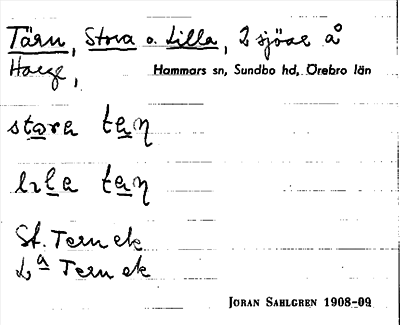 Tärn, Stora o. Lilla, 2 sjöar å
Harge, Hammars sn, Sundbo hd, Örebro län
stora tæɳ
lila tæɳ
St. Tern ek
La Tern ek
JORAN SAHLGREN 1908-09